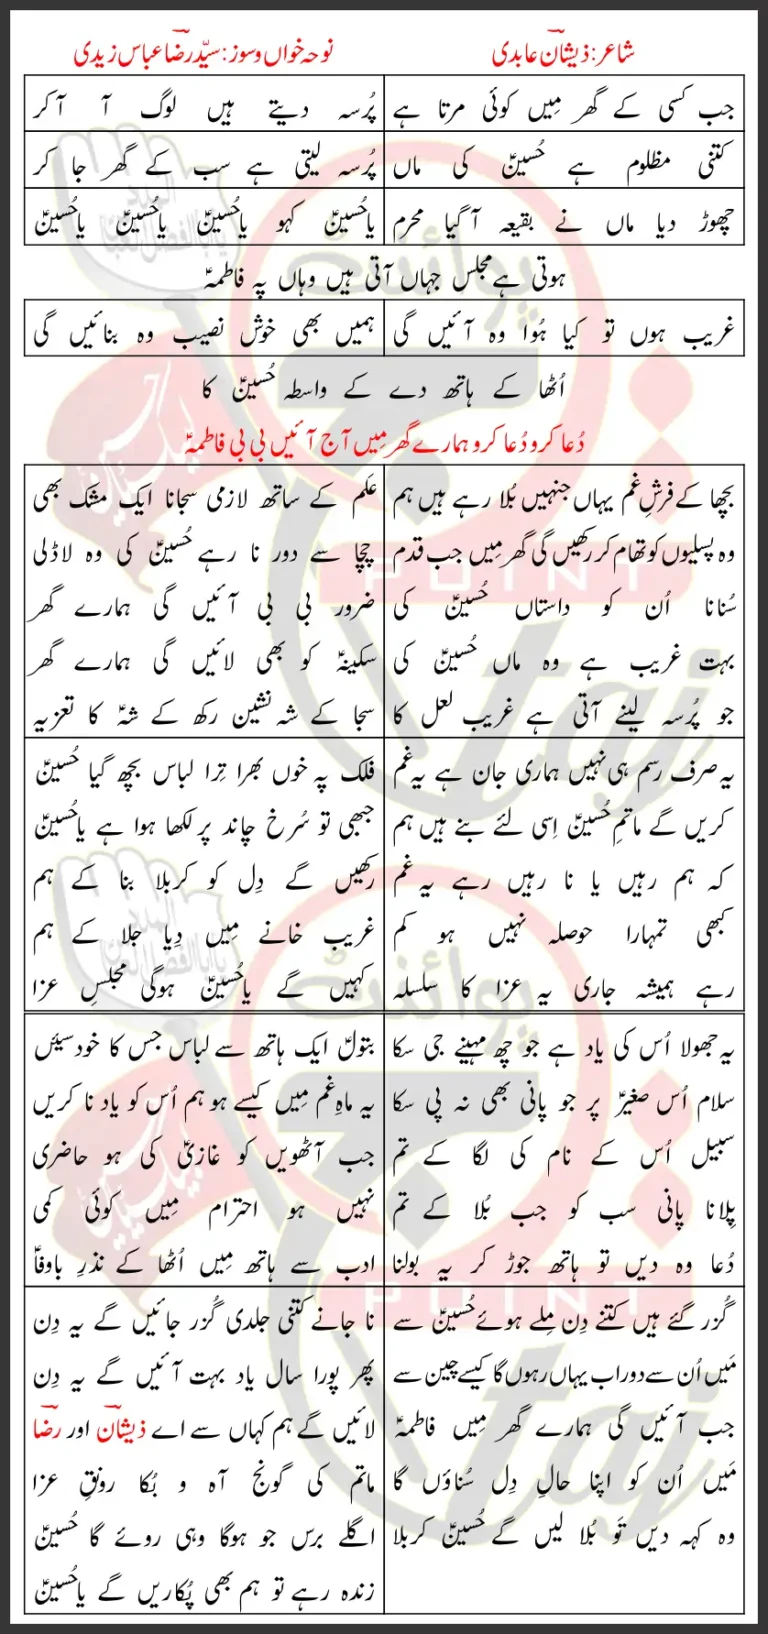 شاعر: ذیشان عابدی	نوحہ خواں و سوز: سیّد رضا عباس زیدی
جب کسی کے گھر مِیں کوئی مرتا ہے	پُرسہ دیتے ہیں لوگ آ آ کر
کتنی مظلوم ہے حُسینؑ کی ماں	پُرسہ لیتی ہے سب کے گھر جا کر
چھوڑ دیا ماں نے بقیعہ آ گیا محرم	یاحُسینؑ کہو یاحُسینؑ یاحُسینؑ یاحُسینؑ
ہوتی ہے مجلس جہاں آتی ہیں وہاں پہ فاطمہؑ
غریب ہوں تو کیا ہُوا وہ آئیں گی	ہمیں بھی خوش نصیب وہ بنائیں گی
اُٹھا کے ہاتھ دے کے واسطہ حُسینؑ کا
دُعا کرو دُعا کرو ہمارے گھر مِیں آج آئیں بی بی فاطمہؑ
بچھا کے فرشِ غم یہاں جنہیں بُلا رہے ہیں ہم	عَلم کے ساتھ لازمی سجانا ایک مشک بھی
وہ پسلیوں کو تھام کر رکھیں گی گھر مِیں جب قدم	چچا سے دور نا رہے حُسینؑ کی وہ لاڈلی
سُنانا اُن کو داستاں حُسینؑ کی	ضرور بی بی آئیں گی ہمارے گھر
بہت غریب ہے وہ ماں حُسینؑ کی	سکینہؑ کو بھی لائیں گی ہمارے گھر
جو پُرسہ لینے آتی ہے غریب لعل کا	سجا کے شہ نشین رکھ کے شہؑ کا تعزیہ
یہ صرف رسم ہی نہیں ہماری جان ہے یہ غم	فلک پہ خوں بھرا تِرا لباس بچھ گیا حُسینؑ
کریں گے ماتمِ حُسینؑ اِسی لئے بنے ہیں ہم	جبھی تو سُرخ چاند پر لکھا ہوا ہے یاحُسینؑ
کہ ہم رہیں یا نا رہیں رہے یہ غم	رکھیں گے دِل کو کربلا بنا کے ہم
کبھی تمہارا حوصلہ نہیں ہو کم	غریب خانے مِیں دِیا جلا کے ہم
رہے ہمیشہ جاری یہ عزا کا سلسلہ	کہیں گے یاحُسینؑ ہوگی مجلسِ عزا
یہ جھولا اُس کی یاد ہے جو چھ مہینے جی سکا	بتولؑ ایک ہاتھ سے لباس جس کا خود سیئں
سلام اُس صغیرؑ پر جو پانی بھی نہ پی سکا	یہ ماہِ غم مِیں کیسے ہو ہم اُس کو یاد نا کریں
سبیل اُس کے نام کی لگا کے تم	جب آٹھویں کو غازیؑ کی ہو حاضری
پِلانا پانی سب کو جب بُلا کے تم	نہیں ہو احترام مِیں کوئی کمی
دُعا وہ دیں تو ہاتھ جوڑ کر یہ بولنا	ادب سے ہاتھ مِیں اُٹھا کے نذرِ باوفاؑ
گُزر گئے ہیں کتنے دِن مِلے ہوئے حُسینؑ سے	نا جانے کتنی جلدی گُزر جائیں گے یہ دِن
مَیں اُن سے دور اب یہاں رہوں گا کیسے چین سے	پھر پورا سال یاد بہت آئیں گے یہ دِن
جب آئیں گی ہمارے گھر مِیں فاطمہؑ	لائیں گے ہم کہاں سے اے ذیشان اور رضا
مَیں اُن کو اپنا حالِ دِل سُناؤں گا	ماتم کی گونج آہ و بُکا رونقِ عزا
وہ کہہ دیں تَو بُلا لیں گے حُسینؑ کربلا	اگلے برس جو ہوگا وہی روئے گا حُسینؑ
زندہ رہے تو ہم بھی پُکاریں گے یاحُسینؑ
پوائنٹ
POINT
taj
پوائنٹ
POINT
taj